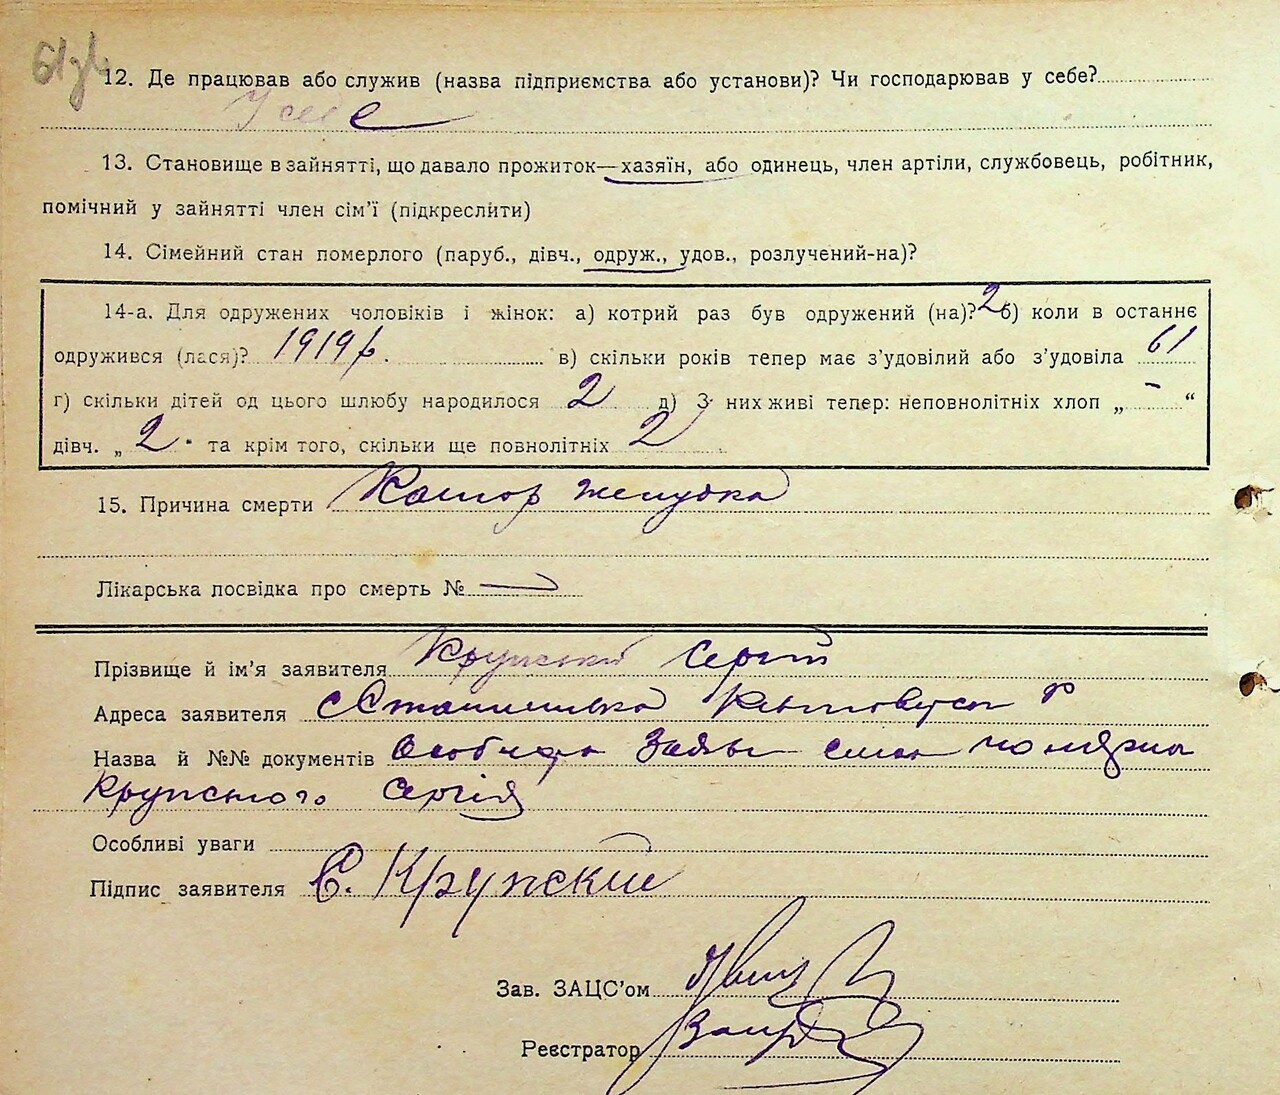 61зв
12. Де працював або служив (назва підприємства або установи)? Чи господарював у себе?
У себе
13. Становище в зайнятті, що давало прожиток—хазяїн, або одинець, член артіли, службовець, робітник,
помічний у зайнятті член сім’ї (підкреслити)
14. Сімейний стан померлого (паруб., дівч., одруж., удов., розлучений-на)?
14-а. Для одружених чоловіків і жінок: а) котрий раз був одружений (на)? 2 б) коли в останнє
одружився (лася)? 1919 р. в) скільки років тепер має з’удовілий або з’удовіла 61
г) скільки дітей од цього шлюбу народилося 2 д) З них живі тепер: неповнолітніх хлоп „ - “
дівч. „ 2 “ та крім того, скільки ще повнолітніх 2
15. Причина смерти Катор желудка
Лікарська посвідка про смерть № —
Прізвище й ім’я заявителя Крупский Сергій
Адреса заявителя с Станишівка
Назва й №№ документів Особиста Заява
Крупського Сергія
Особливі уваги
Підпис заявителя С. Крупский
Зав. ЗАЦС’ом
Реєстратор